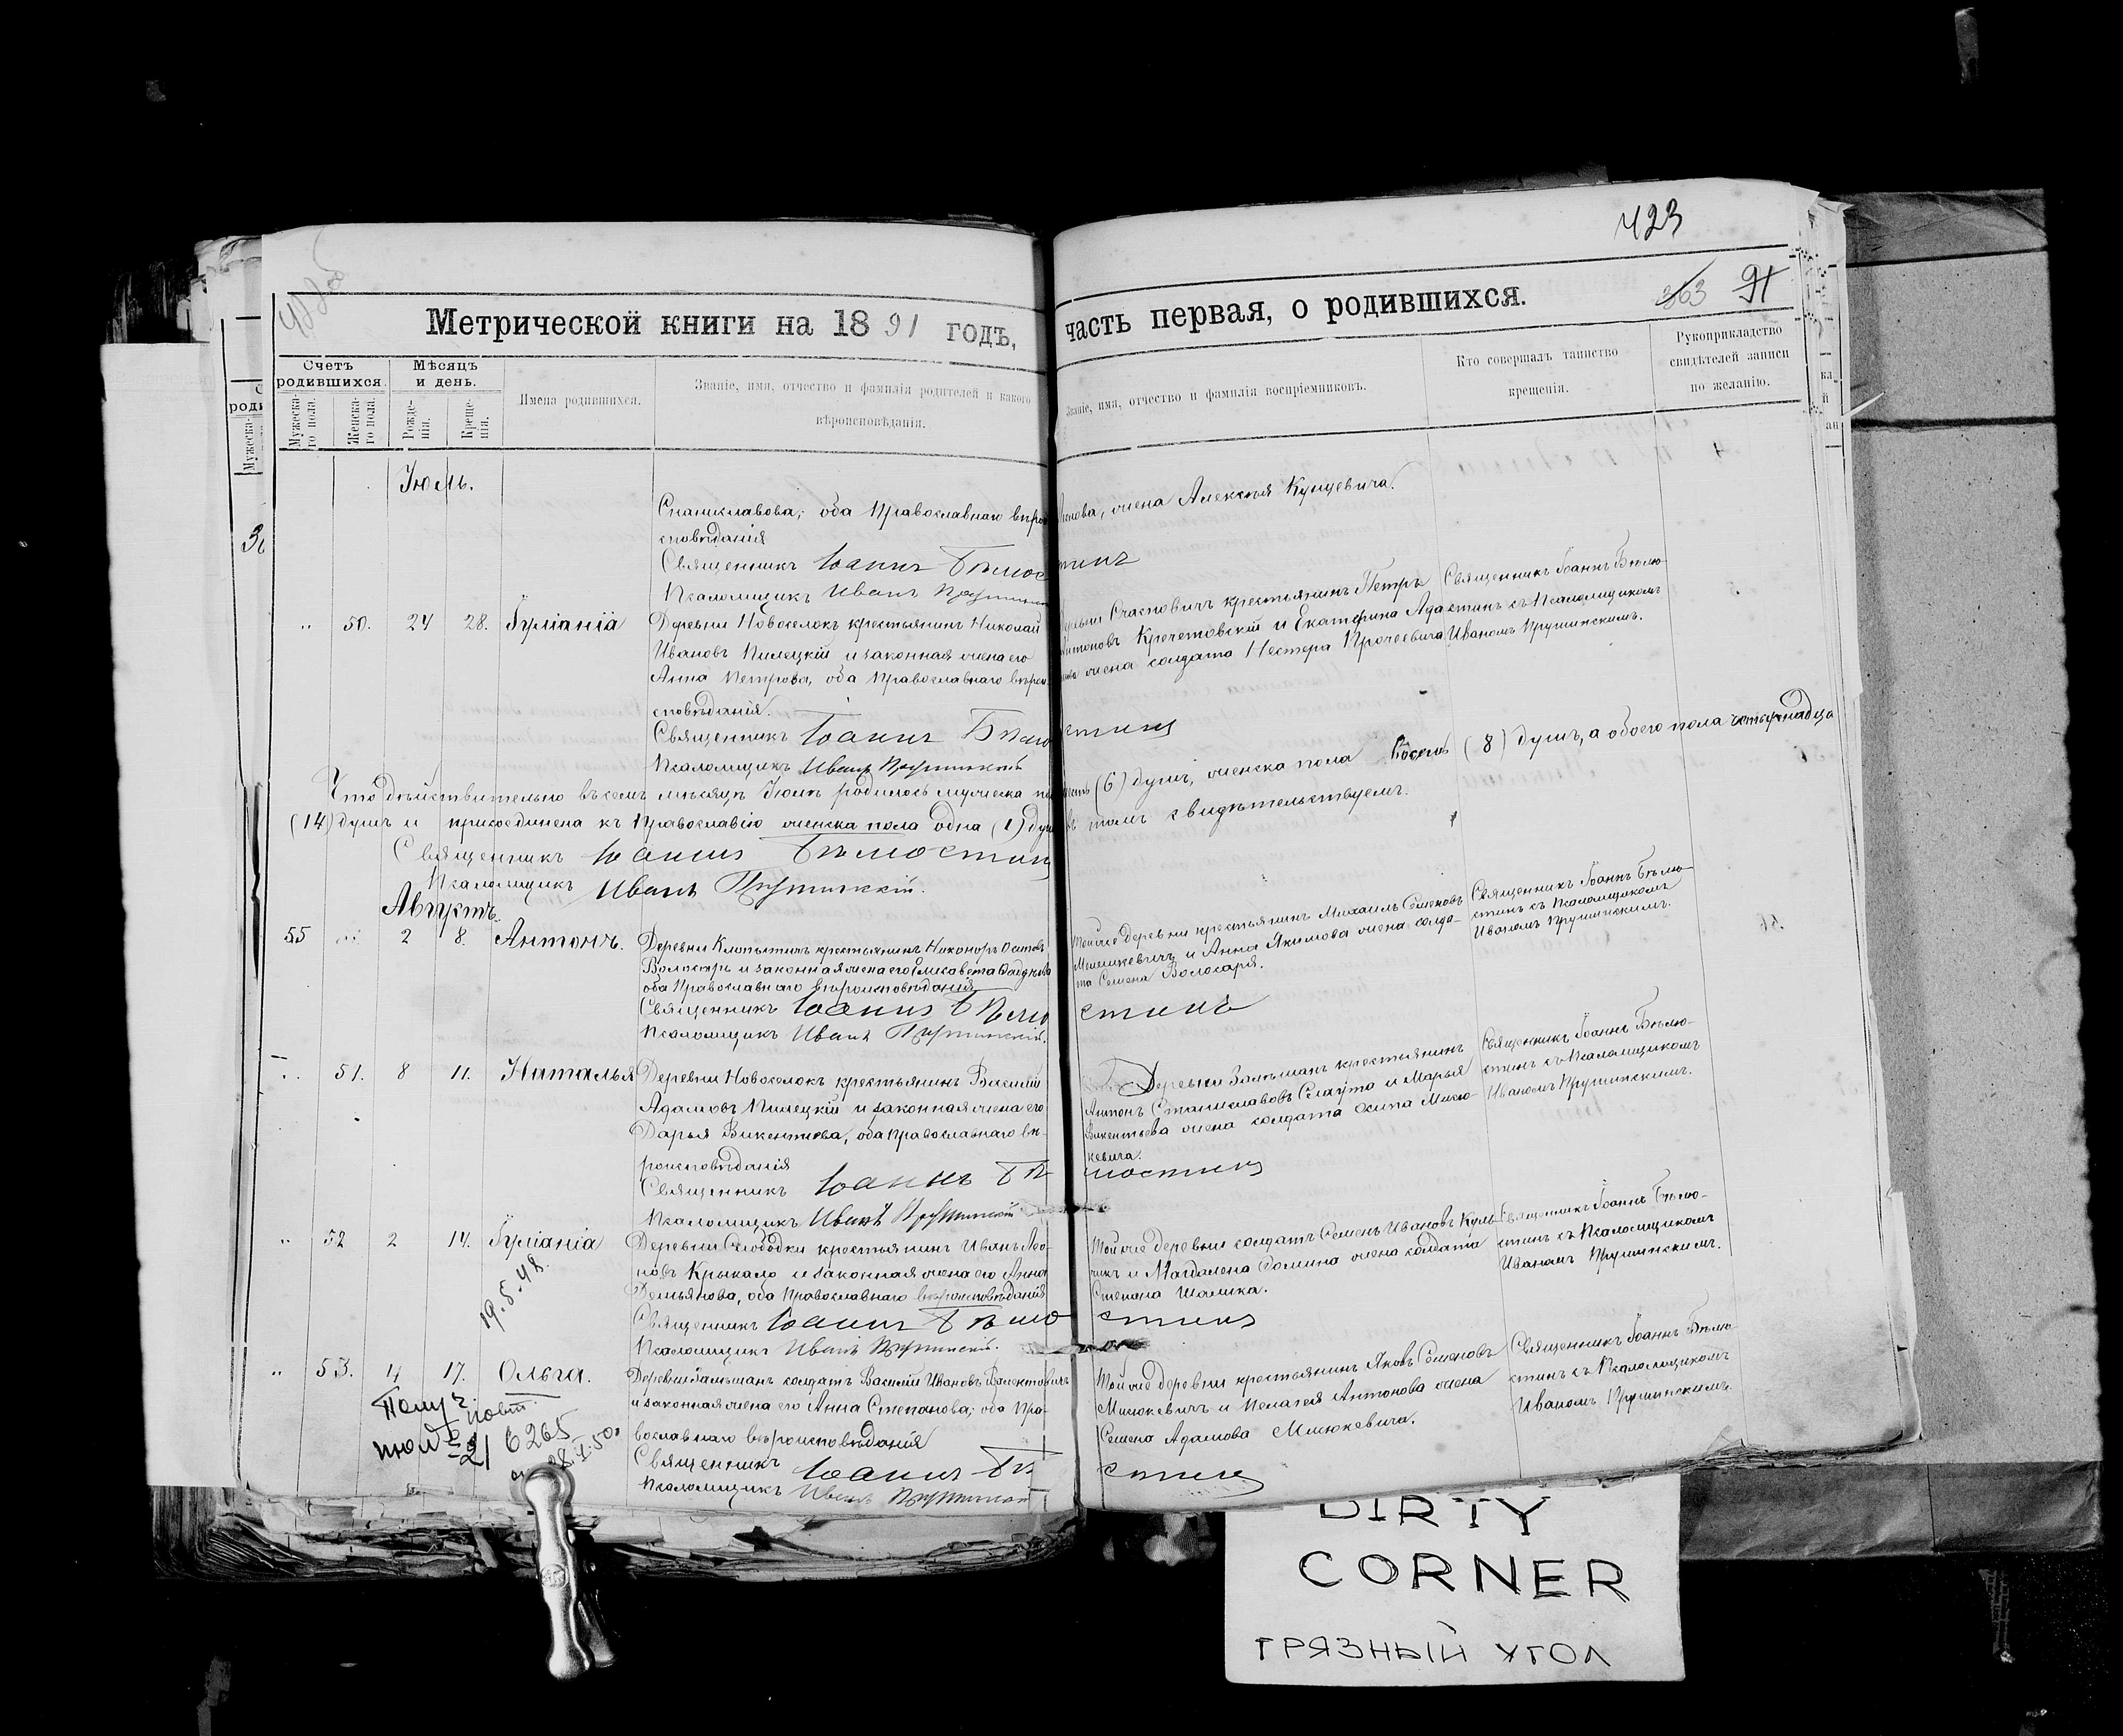 423
363 91
Метрической книги на 1891 годъ,
часть первая, о родившихся.
Счетъ родившихся.
Мужеска-го пола.
Женска-го пола.
Мѣсяцъ и день.
Рожде-нія.
Креще-нія.
Имена родившихся.
Званіе, имя, отчество и фамилія родителей и какого
вѣроисповѣданія.
Званіе, имя, отчество и фамилія воспріемниковъ.
Кто совершалъ таинство
крещенія.
Рукоприкладство
свидѣтелей записи
по желанію.
Іюль.
Станиславова; оба Православнаго вѣрои
сповѣданія
Священникъ Іоаннъ Бѣлюстинъ
Псаломщикъ Иванъ Прушинскій
жена Алексѣя Кунцевича.
" 50. 24 28. Іуліанія
Деревни Новоселокъ крестьянинъ Николай
Ивановъ Пилецкій и законная жена его
Анна Петрова, оба Православнаго вѣрои
сповѣданія.
Священникъ Іоаннъ Бѣлюстинъ
Псаломщикъ Иванъ Прушинскій
крестьянинъ Петръ
Антоновъ Кречетовскій и Екатерина Ада
жена солдата Нестера Прочеевича
Священникъ Іоаннъ Бѣлю-
стинъ съ Псаломщикомъ
Иваномъ Прушинскимъ.
Что дѣйствительно въ семъ мѣсяцѣ Іюлѣ родилось мужеска (6) душъ, женска пола восемь (8) душъ, а обоего пола четырнадца
(14) душъ и присоединена къ Православію женска пола одна (1) душа въ томъ свидѣтельствуемъ.
Священникъ Іоаннъ Бѣлюстинъ
Псаломщикъ Иванъ Прушинскій.
Августъ.
55 " 2 8. Антонъ.
крестьянинъ Никоноръ
и законная жена его Елисавета
оба Православнаго вѣроисповѣданія
Священникъ Іоаннъ Бѣлюстинъ
Псаломщикъ Иванъ Прушинскій.
Той же деревни крестьянинъ Михаилъ Семеновъ
и Анна Якимова жена солда-
та Семена Волосаря.
Священникъ Іоаннъ Бѣлю-
стинъ съ Псаломщикомъ
Иваномъ Прушинскимъ.
" 51. 8 11. Наталья
Деревни Новоселокъ крестьянинъ Василій
Адамовъ Пилецкій и законная жена его
Дарья Викентьева, оба Православнаго вѣ-
роисповѣданія
Священникъ Іоаннъ Бѣлюстинъ
Псаломщикъ Иванъ Прушинскій
Деревни Залѣшанъ крестьянинъ
Антонъ Станиславовъ Селагута и Марья
Викентьева жена солдата Осипа Мисю-
кевича.
Священникъ Іоаннъ Бѣлю-
стинъ съ Псаломщикомъ
Иваномъ Прушинскимъ.
" 52 2 14. Іуліанія
19.5.48.
Деревни Слободки крестьянинъ Иванъ Лео-
новъ Крыкало и законная жена его Анна
Демьянова, оба Православнаго вѣроисповѣданія
Священникъ Іоаннъ Бѣлюстинъ
Псаломщикъ Иванъ Прушинскій.
Той же деревни солдатъ Семенъ Ивановъ
и Магдалена Домина жена солдата
Степана Шалика.
Священникъ Іоаннъ Бѣлю-
стинъ съ Псаломщикомъ
Иваномъ Прушинскимъ.
" 53. 4 17. Ольга.
21 6265
Деревни Залѣшанъ солдатъ Василій Ивановъ
и законная жена его Анна Степанова; оба Пра-
вославнаго вѣроисповѣданія
Священникъ Іоаннъ Бѣлюстинъ
Псаломщикъ Иванъ Прушинскій
Той же деревни крестьянинъ Яковъ Семеновъ
Мисюкевичъ и Пелагея Антонова жена
Семена Адамова Мисюкевича.
Священникъ Іоаннъ Бѣлю-
стинъ съ Псаломщикомъ
Иваномъ Прушинскимъ.
DIRTY
CORNER
ГРЯЗНЫЙ УГОЛ